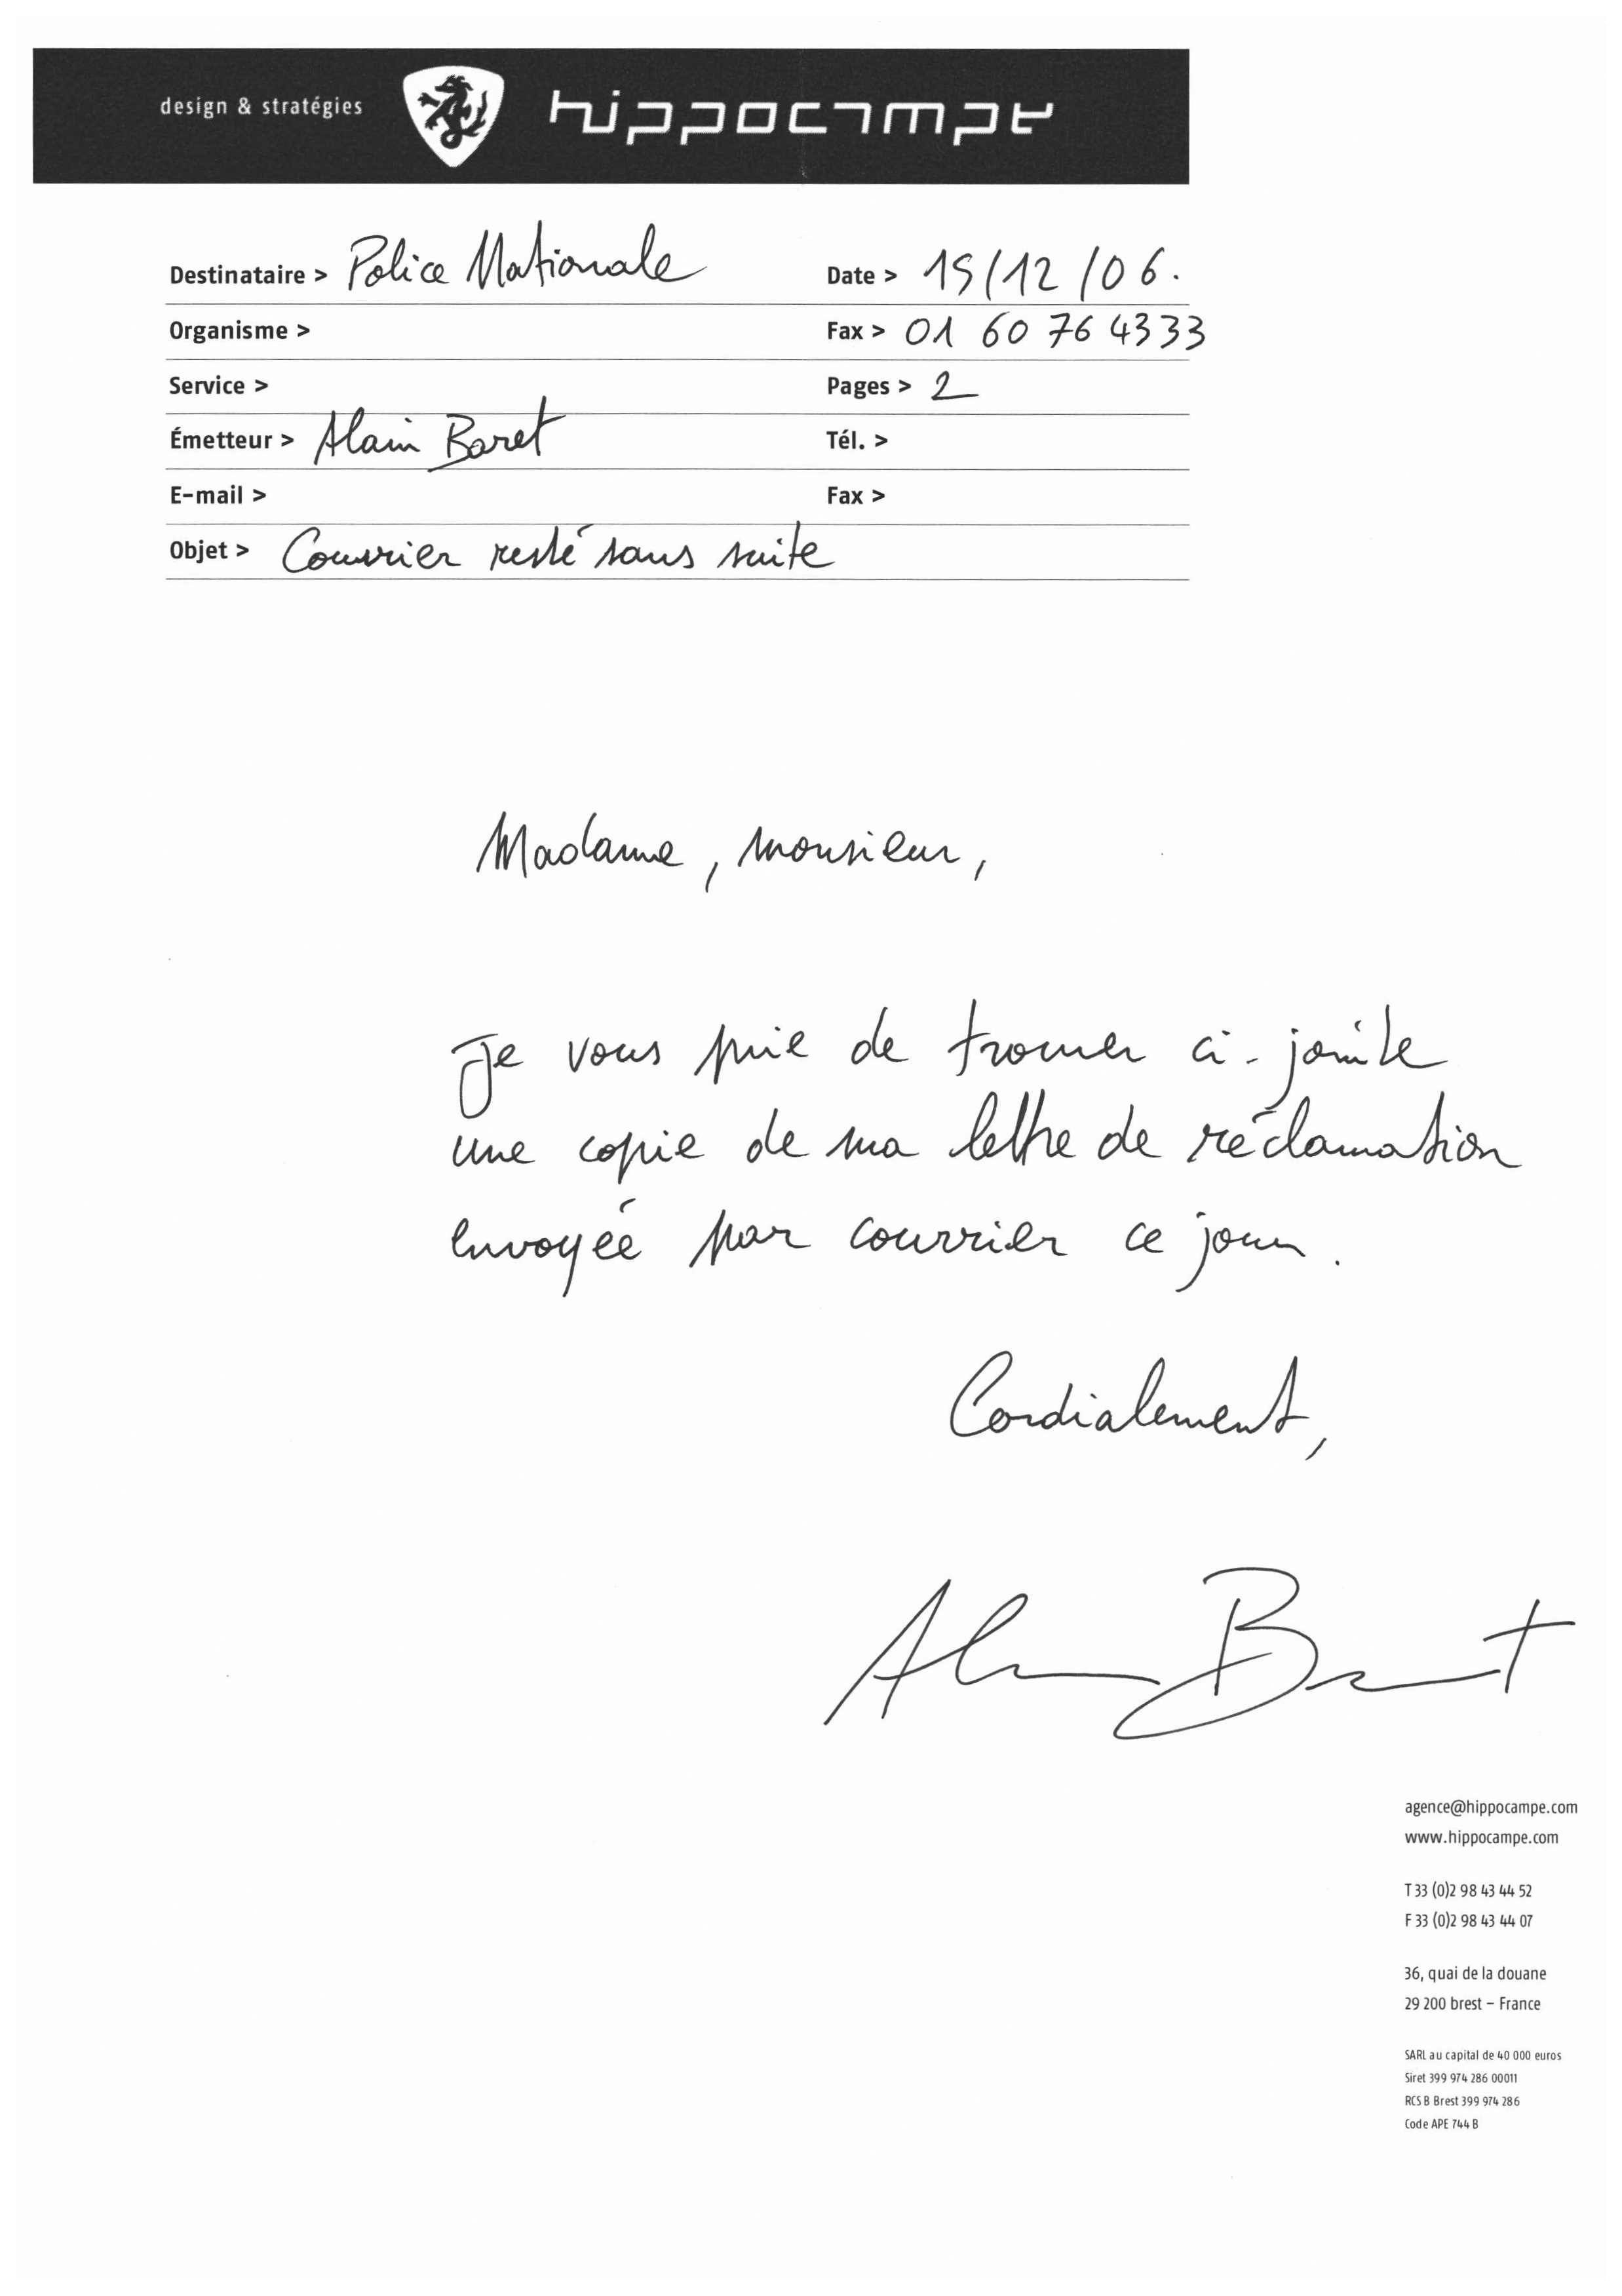 design & stratégies hippocampe
Destinataire > Police Nationale Date > 15/12/06.
Organisme > Fax > 01 60 76 43 33
Service > Pages > 2
Émetteur > Alain Baret Tél. >
E-mail > Fax >
Objet > Courrier resté sans suite
Madame, Monsieur,
Je vous prie de trouver ci-jointe
une copie de ma lettre de réclamation
envoyée par courrier ce jour.
Cordialement,
agence@hippocampe.com
www.hippocampe.com
T 33 (0)2 98 43 44 52
F 33 (0)2 98 43 44 07
36, quai de la douane
29 200 brest – France
SARL au capital de 40 000 euros
Siret 399 974 286 00011
RCS B Brest 399 974 286
Code APE 744 B